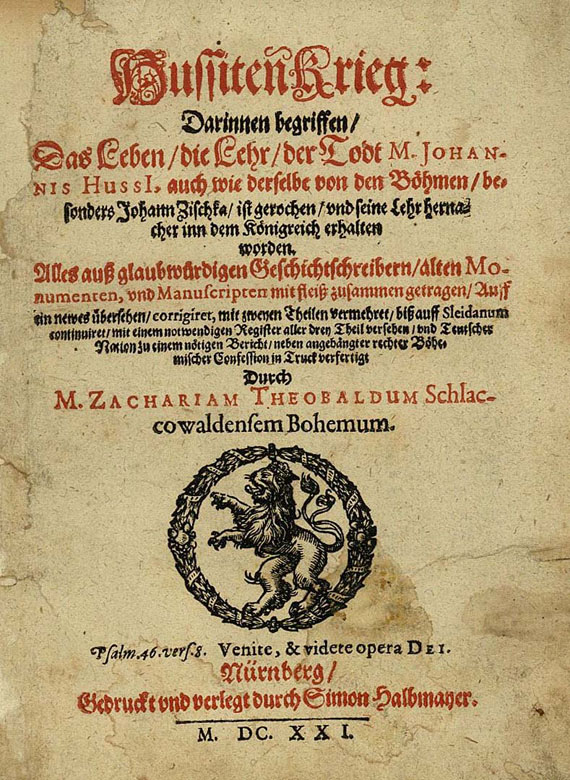 HussitenKrieg:
Darinnen begriffen/
Das Leben/die Lehr/der Todt M. JOHAN-
NIS HUSSI, auch wie derselbe von den Böhmen/be-
sonders Johann Zischka/ist gerochen/vnd seine Lehr herna-
cher inn dem Königreich erhalten
worden.
Alles auß glaubwürdigen Geschichtschreibern/alten Mo-
numenten, vnd Manuscripten mit fleiß zusammen getragen/Auff
ein newes übersehen/corrigiret, mit zweyen Theilen vermehret/biß auff Sleidanum
continuiret/mit einem notwendigen Register aller drey Theil versehen/vnd Teutscher
Nation zu einem nötigen Bericht/neben angehängter rechter Böh-
mischer Confession in Truck verfertigt
Durch
M. ZACHARIAM THEOBALDUM Schlac-
cowaldensem Bohemum.
Psalm. 46. vers. 8. Venite, & videte opera DEI.
Nürnberg/
Gedruckt vnd verlegt durch Simon Halbmayer.
M. DC. XXI.